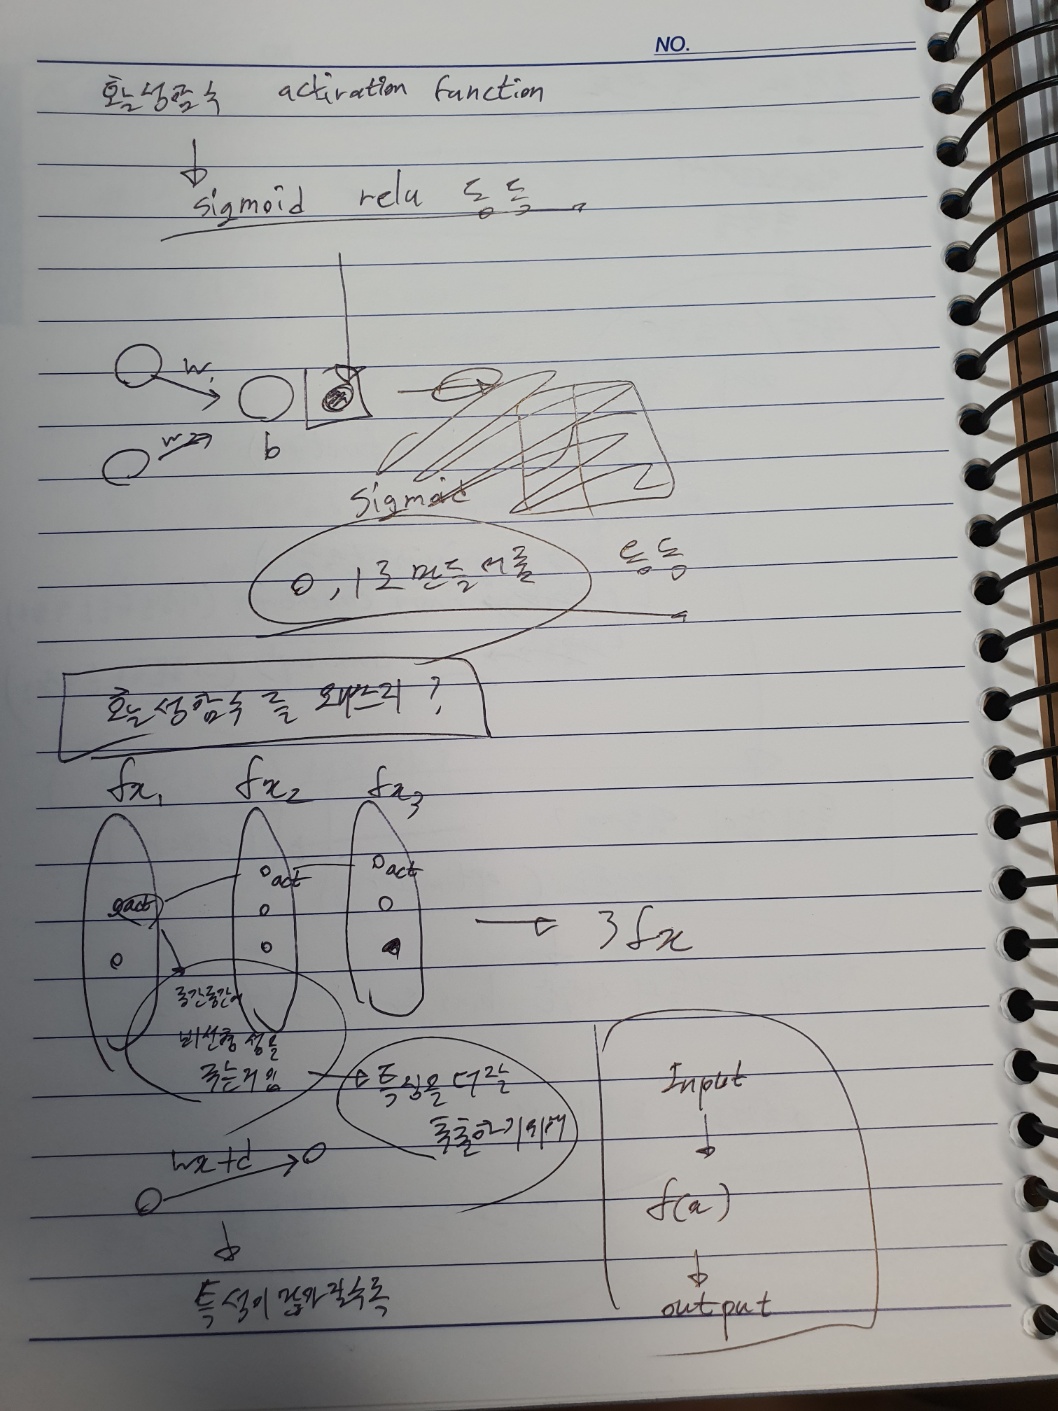 NO.
활성함수 activation function
sigmoid relu 등등
w1
w2
b
sigmoid
0, 1로 만들어줌 등등
활성함수를 왜쓰리?
fx1 fx2 fx3
act act act
3fx
중간중간에
비선형성을
주는거임
특징을 더 잘
추출하기위해
wx+d
특성이
Input
f(x)
output